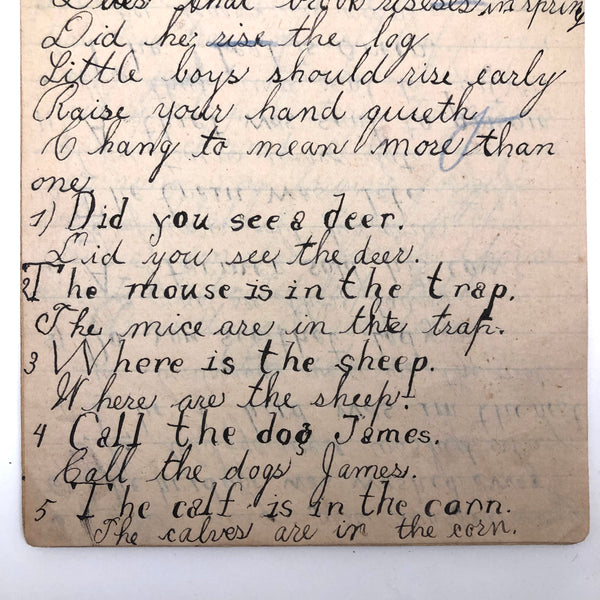 Does that brook rises in spring
Did he rise the log
Little boys should rise early
Raise your hand quietly
Chang to mean more than
one
1) Did you see a deer.
Did you see the deer.
2 The mouse is in the trap.
The mice are in the trap.
3 Where is the sheep.
Where are the sheep.
4 Call the dog James.
Call the dogs James.
5 The calf is in the corn.
The calves are in the corn.